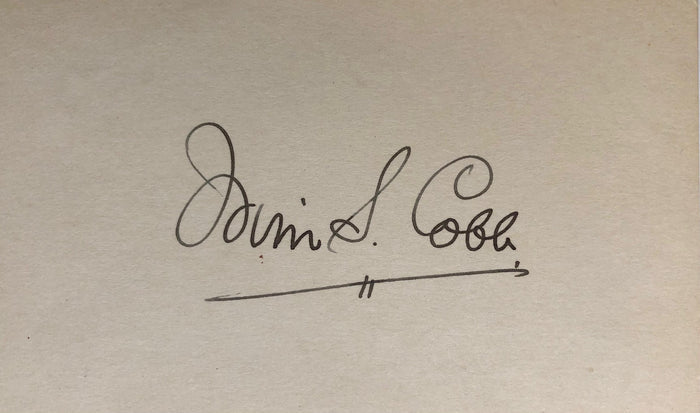 Irvin S. Cobb